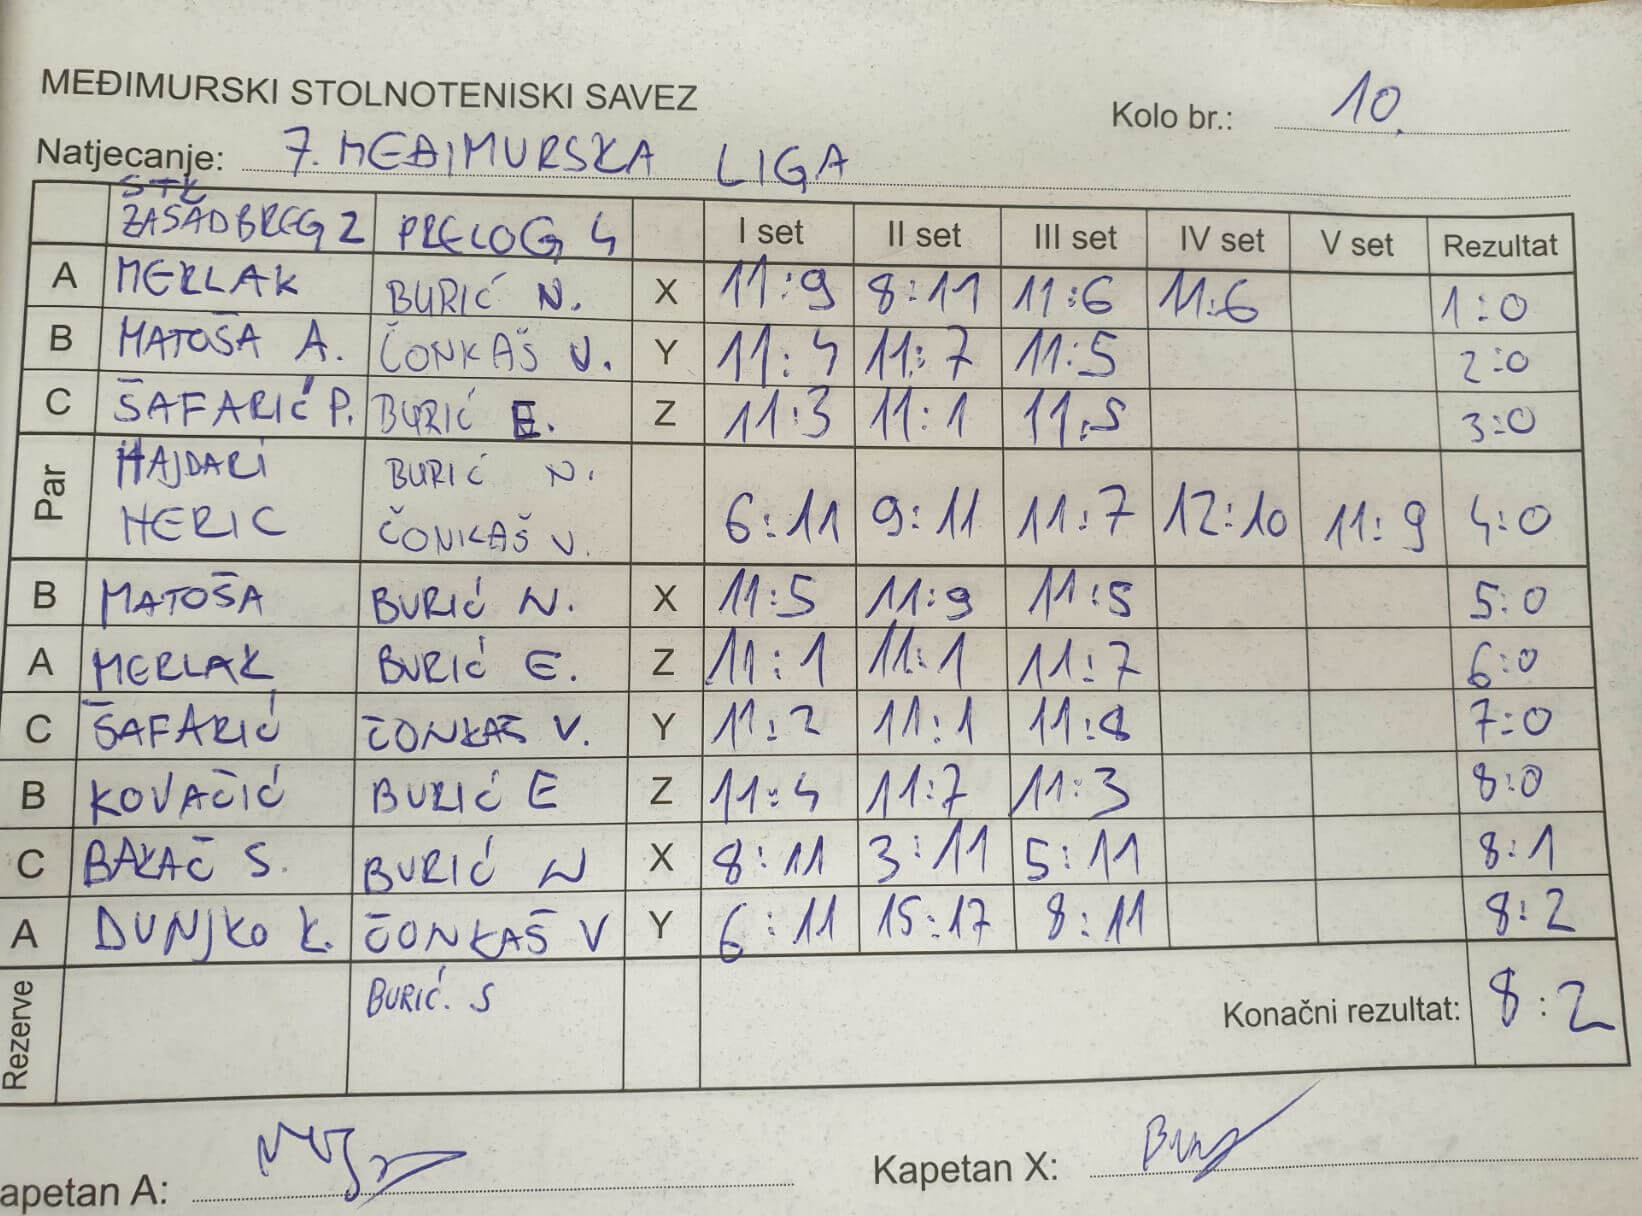 MEĐIMURSKI STOLNOTENISKI SAVEZ
Kolo br.: 10.
Natjecanje: 7. MEĐIMURSKA LIGA
STK ZASADBREG 2 PRELOG 4 I set II set III set IV set V set Rezultat
A MERLAK BURIĆ N. X 11:9 8:11 11:6 11:6 1:0
B MATOŠA A. ČONKAŠ V. Y 11:4 11:7 11:5 2:0
C ŠAFARIĆ P. BURIĆ E. Z 11:3 11:1 11:5 3:0
Par HAJDARI BURIĆ N.
MERIC ČONKAŠ V. 6:11 9:11 11:7 12:10 11:9 4:0
B MATOŠA BURIĆ N. X 11:5 11:9 11:5 5:0
A MERLAK BURIĆ E. Z 11:1 11:1 11:7 6:0
C ŠAFARIĆ ČONKAŠ V. Y 11:2 11:1 11:8 7:0
B KOVAČIĆ BURIĆ E Z 11:4 11:7 11:3 8:0
C BAKAČ S. BURIĆ N X 8:11 3:11 5:11 8:1
A DUNJKO K. ČONKAŠ V Y 6:11 15:17 8:11 8:2
Rezerve BURIĆ. S Konačni rezultat: 8:2
apetan A:
Kapetan X: